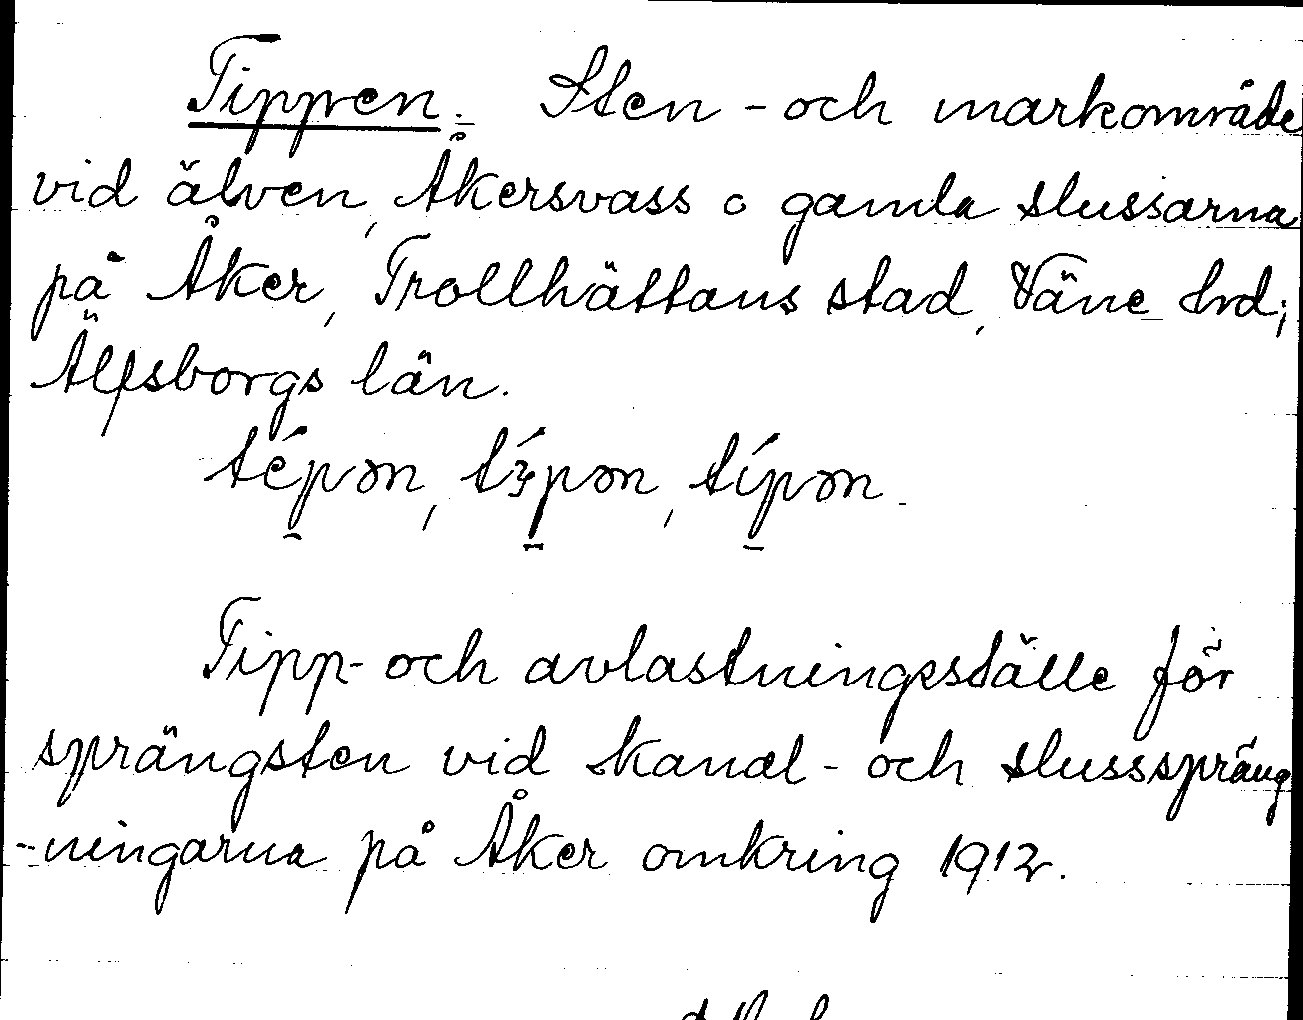 Tippen. Sten- och markområde
vid älven, Åkersvass o gamla slussarna
på Åker, Trollhättans stad, Väne hrd;
Älfsborgs län.
tépən, tɜ́pən, típən.
Tipp- och avlastningsställe för
sprängsten vid kanal- och slusspräng
-ningarna på Åker omkring 1912.